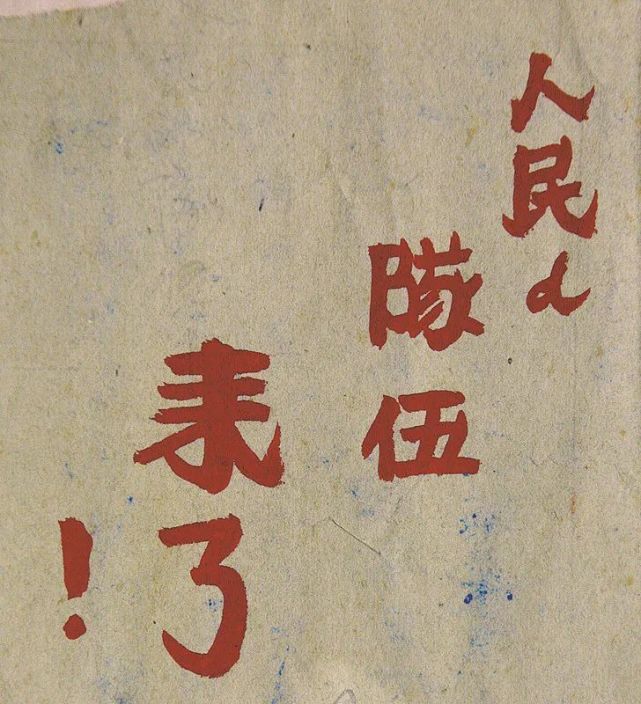 人民d
隊伍
来了
!